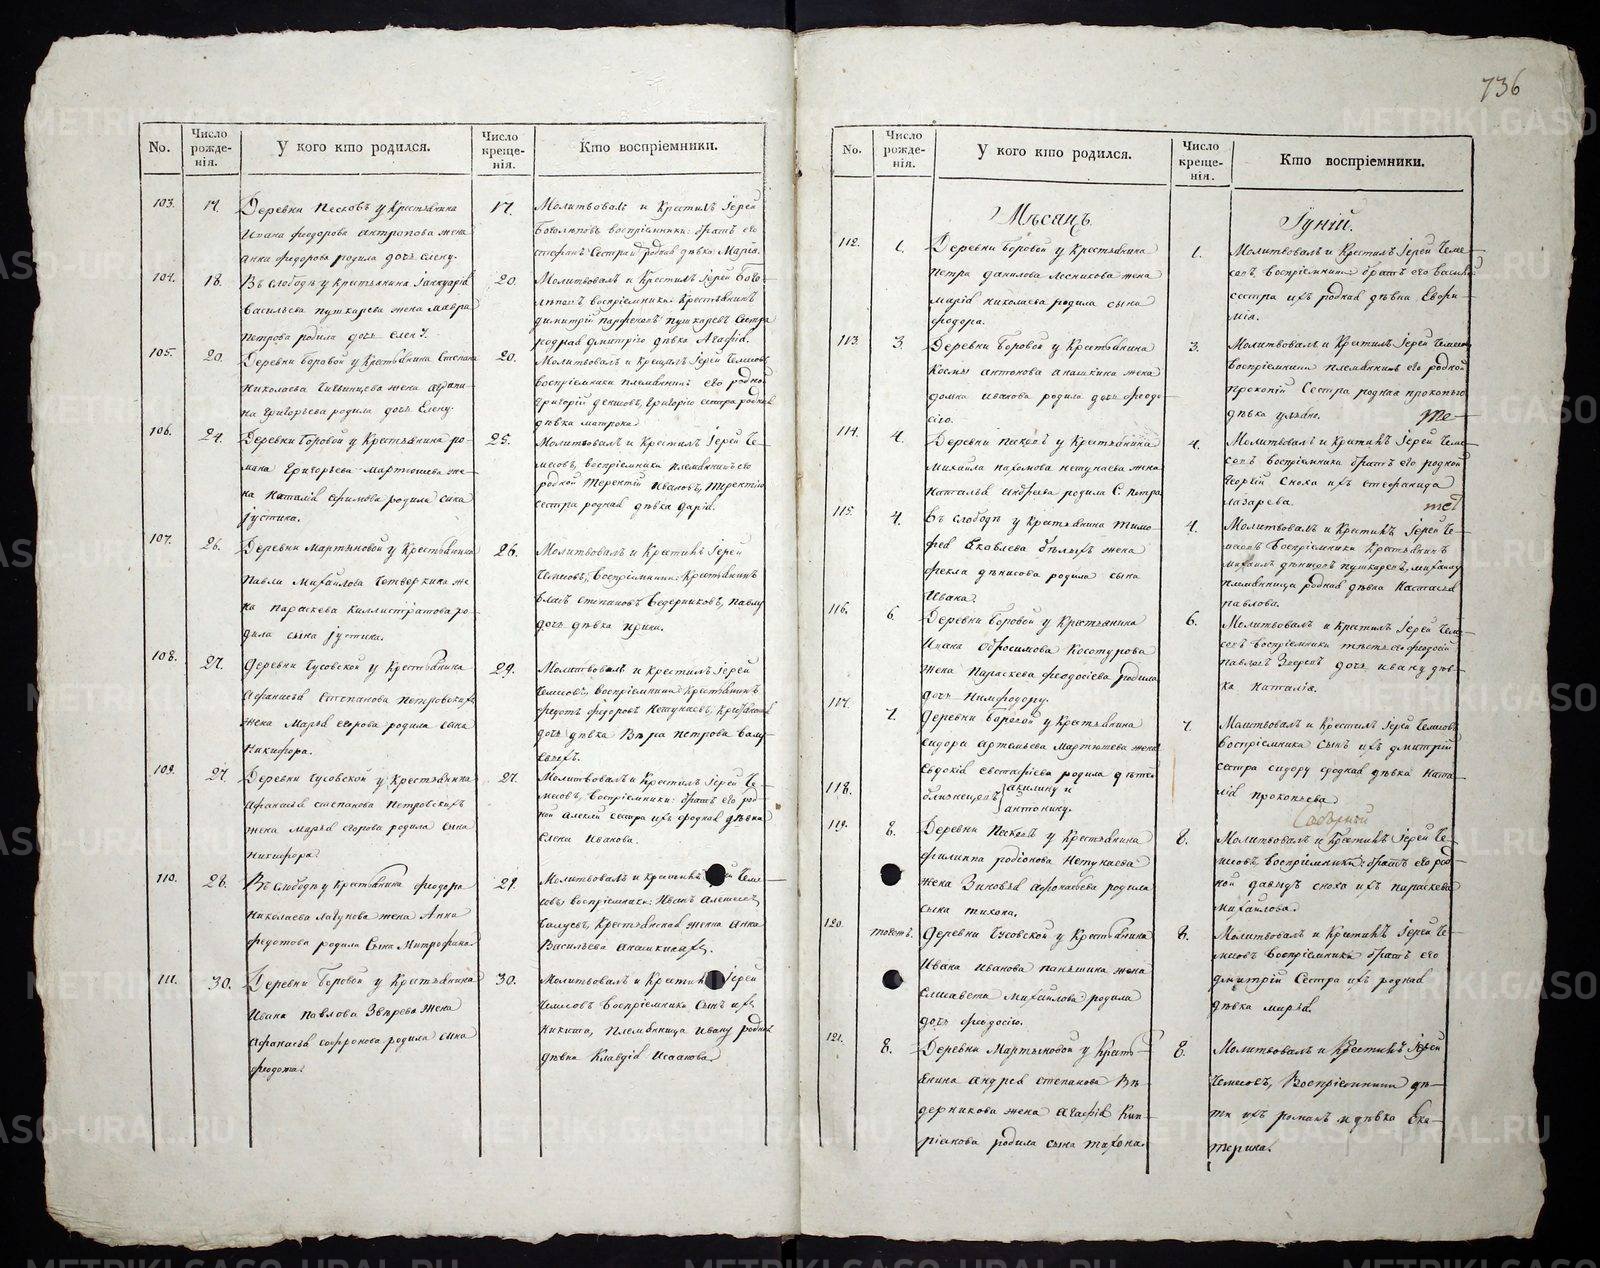 736
No.
Число рожде-нія.
У кого кто родился.
Число креще-нія.
Кто воспріемники.
103.
17.
Деревни Песковъ у крестьянина
Ивана Федорова Антропова жена
Анна Федорова родила дочь Елену.
17.
Молитвовалъ и крестилъ Іерей
воспріемники: братъ его
Стефанъ Сестра и родная дѣвка Марія.
104.
18.
Въ слободѣ у крестьянина
Васильева Пушкарева жена Мавра
Петрова родила дочь Елену.
20.
Молитвовалъ и крестилъ Іерей Бого-
воспріемники: крестьянинъ
Димитрій Парфеновъ Пушкаревъ Сестра
родная Дмитрію дѣвка Агафія.
105.
20.
Деревни Боровой у крестьянина Степана
Николаева жена Агрипи-
на Григорьева родила дочь Елену.
20.
Молитвовалъ и крещалъ Іерей Чемесовъ
воспріемники племянникъ его родной
Григорій Денисовъ, Григорію сестра родная
дѣвка Матрона.
106.
24.
Деревни Боровой у крестьянина Ро-
мана Григорьева Мартюшева же-
на Наталія Ефимова родила сына
Іустина.
25.
Молитвовалъ и крестилъ Іерей Че-
месовъ, воспріемники племянникъ его
родной Терентій Ивановъ, Терентію
сестра родная дѣвка Дарія.
107.
26.
Деревни Мартьяновой у крестьянина
Павла Михайлова Четверкина же-
на Параскева Каллистратова ро-
дила сына Іустина.
26.
Молитвовалъ и крестилъ Іерей
Чемесовъ, воспріемники: крестьянинъ
Власъ Степановъ Ведерниковъ, Павлу
дочь дѣвка Ирина.
108.
27.
Деревни Чусовской у крестьянина
Афанасья Степанова Петровскихъ
жена Марья Егорова родила сына
Никифора.
29.
Молитвовалъ и крестилъ Іерей
Чемесовъ, воспріемники: крестьянинъ
Федотъ Федоровъ Нетунаевъ, крестьянская
дочь дѣвка Вѣра Петрова
109.
27.
Деревни Чусовской у крестьянина
Афанасья Степанова Петровскихъ
жена Марья Егорова родила сына
Никифора.
27.
Молитвовалъ и крестилъ Іерей Че-
месовъ, воспріемники: братъ его род-
ной Алексѣй сестра ихъ сродная дѣвка
Елена Иванова.
110.
28.
Въ слободѣ у крестьянина Федора
Николаева Лагунова жена Анна
Федотова родила сына Митрофана.
29.
Молитвовалъ и крестилъ Чеме-
совъ воспріемники: Иванъ Алексѣевъ
крестьянская жена Анна
Васильева Анашкиныхъ.
111.
30.
Деревни Боровой у крестьянина
Ивана Павлова Звѣрева жена
Афанасья Софронова родила сына
Федота.
30.
Молитвовалъ и крестилъ Іерей
Чемесовъ воспріемники Сынъ ихъ
Никита, племянница Ивану родная
дѣвка Клавдія Исаакова.
No.
Число рожде-нія.
У кого кто родился.
Число креще-нія.
Кто воспріемники.
Мѣсяцъ
Іуній.
112.
1.
Деревни Боровой у крестьянина
Петра Данилова Лесникова жена
Марія Николаева родила сына
Федора.
1.
Молитвовалъ и крестилъ Іерей Чеме-
совъ, воспріемники братъ его Василій
сестра ихъ родная дѣвка Евфи-
мія.
113.
3.
Деревни Боровой у крестьянина
Космы Антонова Анашкина жена
Домна Иванова родила дочь Феодо-
сію.
3.
Молитвовалъ и крестилъ Іерей Чемесовъ
воспріемники племянникъ его родной
Прокопій Сестра родная Прокопью
дѣвка
114.
4.
Деревни Песковъ у крестьянина
Михаила Пахомова Нетунаева жена
Наталья Андреева родила С. Петра
4.
Молитвовалъ и крестилъ Іерей Чеме-
совъ воспріемники братъ его родной
Георгій Сноха ихъ Стефанида
Лазарева.
115.
4.
Въ слободѣ у крестьянина Тимо-
фея Яковлева Бѣлыхъ жена
Фекла Денисова родила сына
Ивана.
4.
Молитвовалъ и крестилъ Іерей Че-
месовъ воспріемники крестьянинъ
Михаилъ Пушкаревъ, Михаилу
племянница родная дѣвка Настасья
Павлова.
116.
6.
Деревни Боровой у крестьянина
Ивана Обросимова Косотурова
жена Параскева Феодосіева родила
дочь Нимфодору.
6.
Молитвовалъ и крестилъ Іерей Чеме-
совъ воспріемники тесть его Феодосій
Павловъ Зверевъ дочь Ивану дѣв-
ка Наталія.
117.
7.
Деревни Боровой у крестьянина
Сидора Артемьева Мартюшева жена
Евдокія Евстафіева родила дѣтей
118.
близнецовъ Акилину и
Антонину.
7.
Молитвовалъ и крестилъ Іерей Чемесовъ
воспріемники Сынъ ихъ Дмитрій
сестра Сидору сродная дѣвка Ната-
лія Прокопьева
119.
8.
Деревни Песковъ у крестьянина
Филиппа Родіонова Нетунаева
жена Зиновья Афонасьева родила
сына Тихона.
8.
Молитвовалъ и крестилъ Іерей Че-
месовъ воспріемники братъ его род-
ной Давыдъ сноха ихъ Параскева
Михайлова.
120.
тотъ.
Деревни Чусовской у крестьянина
Ивана Иванова Паньшина жена
Елисавета Михайлова родила
дочь Феодосію.
8.
Молитвовалъ и крестилъ Іерей Че-
месовъ воспріемники братъ его
Дмитрій Сестра ихъ родная
дѣвка Марья.
121.
8.
Деревни Мартьяновой у кресть-
янина Андрея Степанова Ве-
дерникова жена Агафія Кип-
ріанова родила сына Тихона.
8.
Молитвовалъ и крестилъ Іерей
Чемесовъ, воспріемники дѣ-
ти ихъ Романъ и дѣвка Ека-
терина.
METRIKI.GASO-URAL.RU